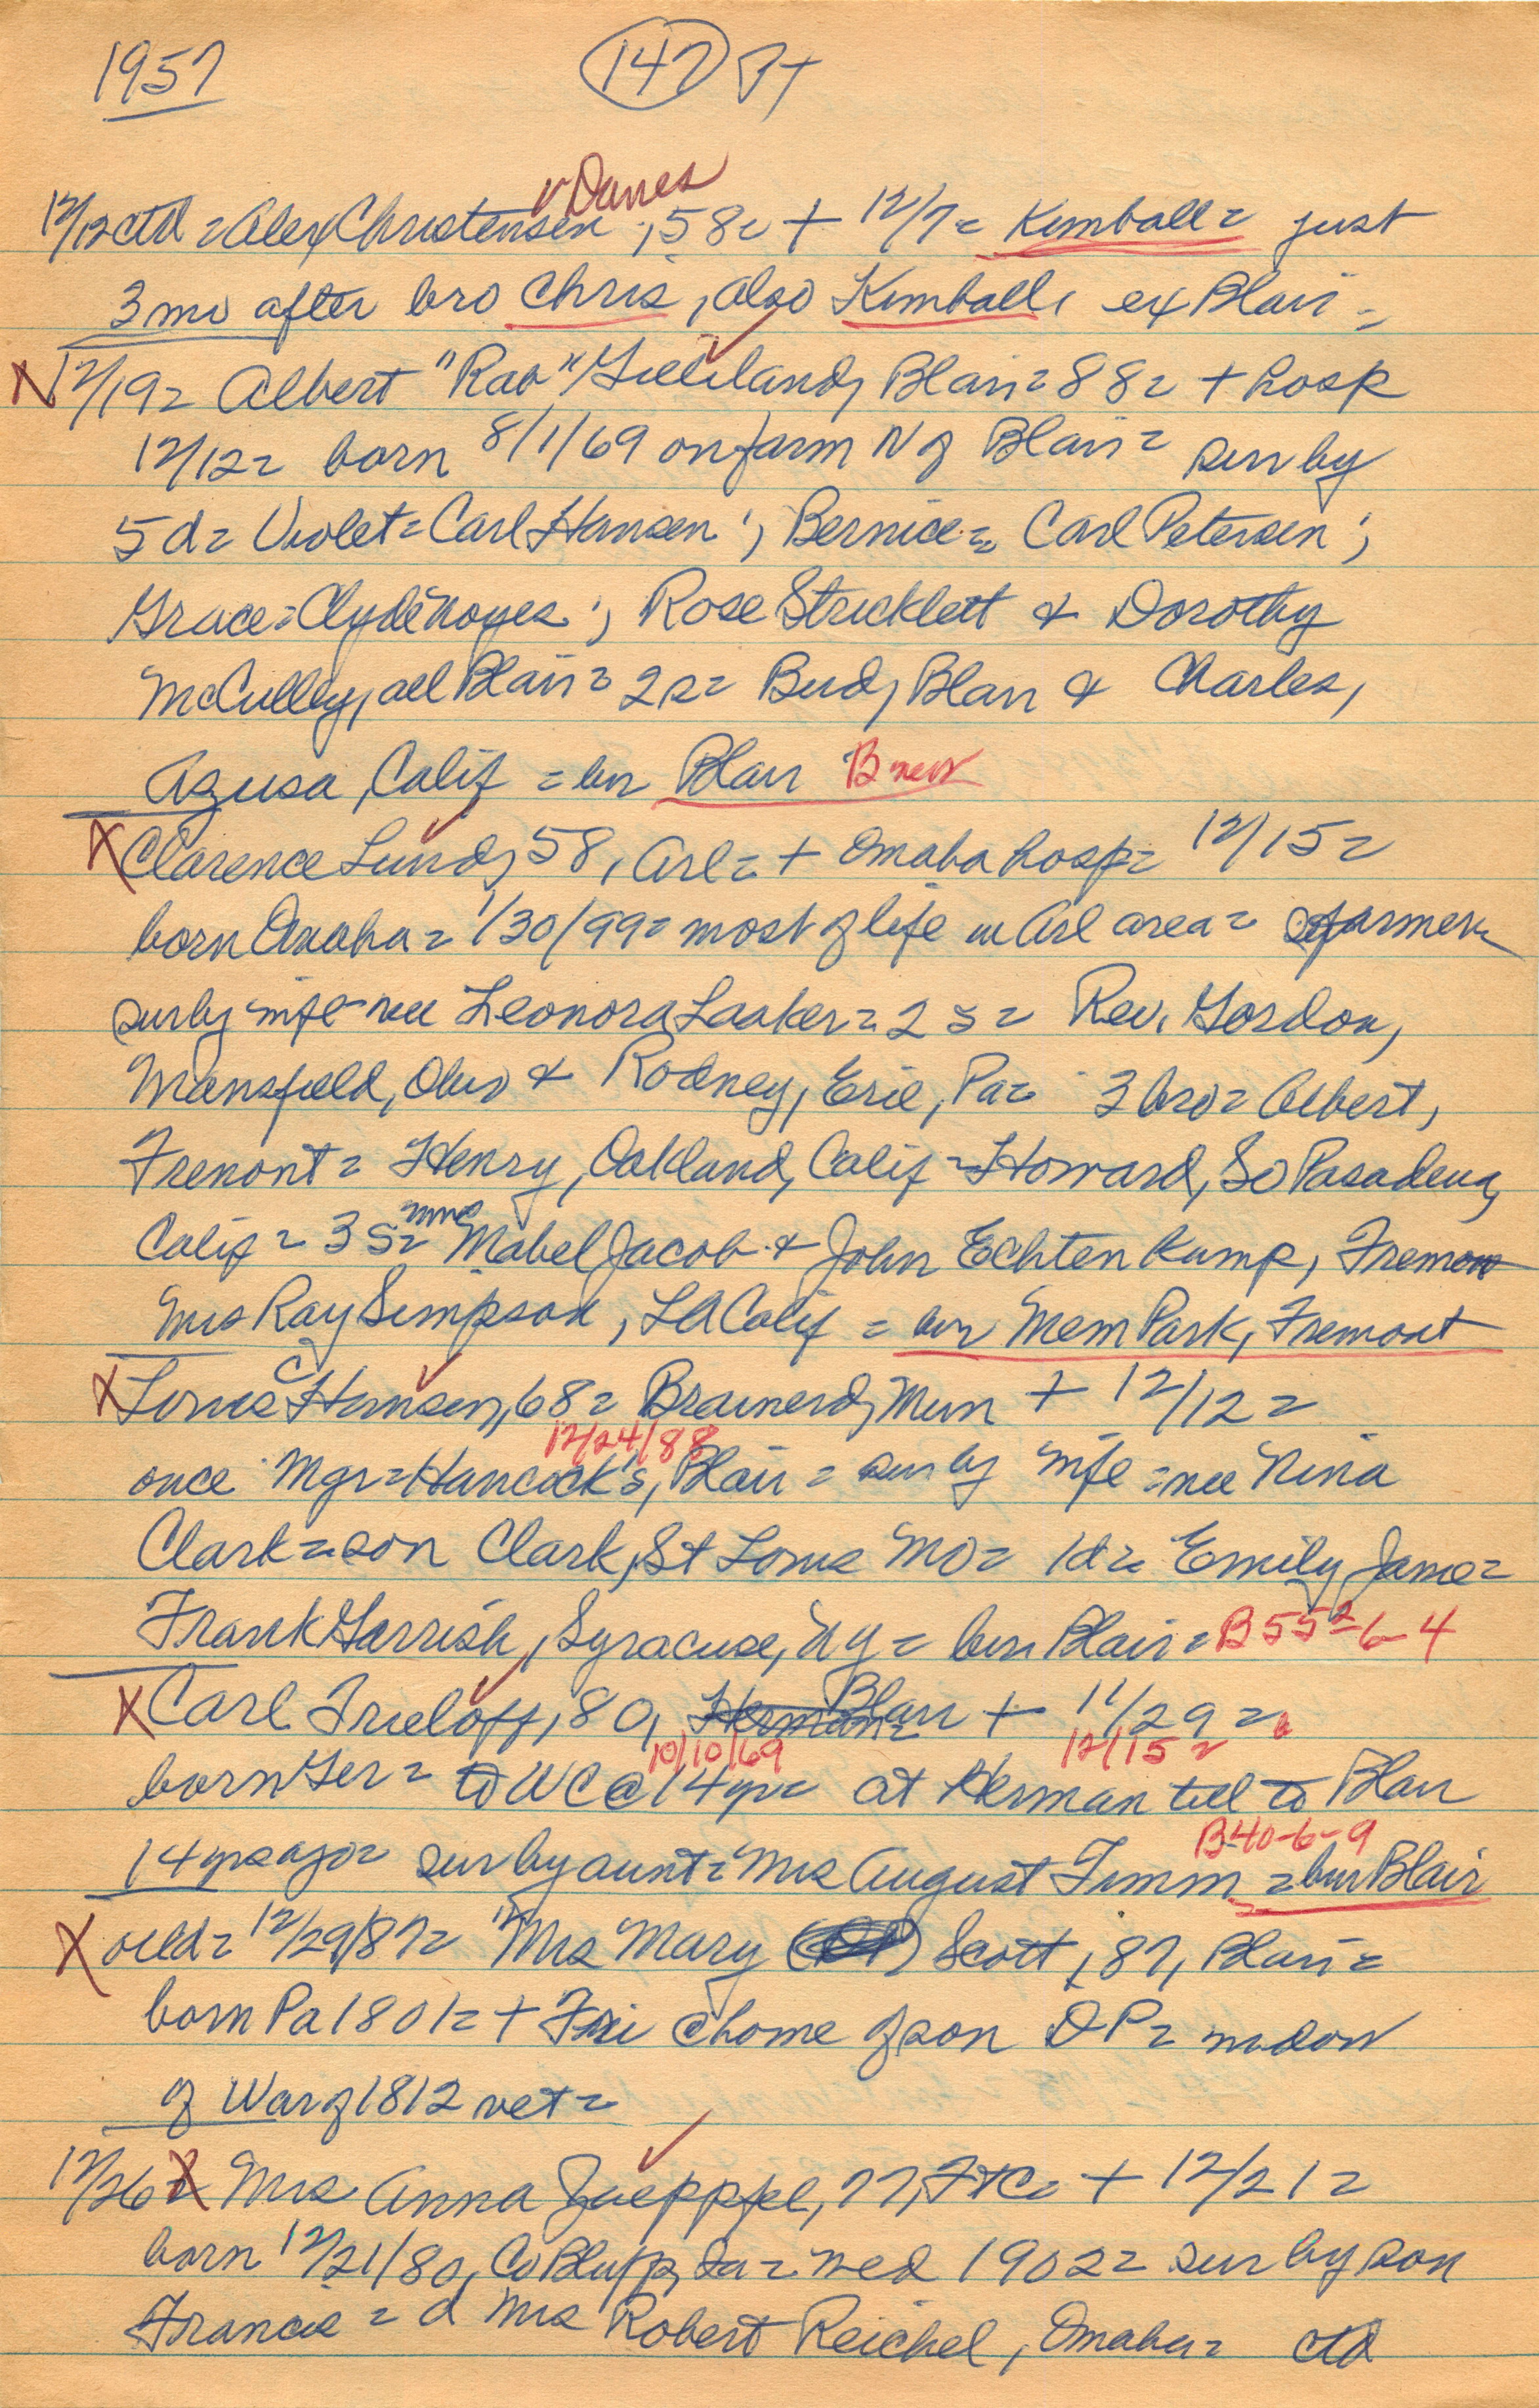 1957 147 Pt
v Danes
12/12 ctd = Alex Christensen, 58 = + 12/7 = Kimball = just
3 mo after bro Chris, also Kimball, ex Blair =
X 12/19 = Albert "Rab" Gilliland, Blair = 88 = + hosp
12/12 = born 8/1/69 on farm N of Blair = sur by
5 d = Violet = Carl Hansen; Bernice = Carl Petersen;
Grace = Clyde Noyes; Rose Stricklett & Dorothy
McCulley, all Blair = 2 s = Bud, Blair & Charles,
Azusa, Calif = bur Blair B new
X Clarence Lund, 58, Arl = + Omaha hosp = 12/15 =
born Omaha = 1/30/99 = most of life in Arl area = farmer
sur by wife nee Leonora Laaker = 2 s = Rev. Gordon,
Mansfield, Ohio & Rodney, Erie, Pa = 3 bro = Albert,
Fremont = Henry, Oakland, Calif = Howard, So Pasadena,
Calif = 3 s = mmes Mabel Jacob & John Echtenkamp, Fremont
Mrs Ray Simpson, LA Calif = bur Mem Park, Fremont
X Louis C Hansen, 68 = Brainerd, Minn + 12/12 =
12/24/88
once Mgr = Hancock's, Blair = sur by wife = nee Nina
Clark = son Clark, St Louis Mo = 1 d = Emily Jane =
Frank Garrish, Syracuse, NY = bur Blair = B 552-6-4
X Carl Trieloff, 80, Herman Blair + 11/29 =
10/10/69 12/15 =
born Ger = to WC @ 14 yr = at Herman till to Blair
14 yrs ago = sur by aunt = Mrs August Timm = bur Blair
B 40-6-9
X oeld = 12/29/87 = "Mrs Mary Scott, 87, Blair =
born Pa 1801 = + Fri @ home of son DP = widow
of War of 1812 vet =
12/26 = X Mrs Anna Jaeppfel, 77, FtC = + 12/21 =
born 12/21/80, Co Bluffs, Ia = wed 1902 = sur by son
Francis = d Mrs Robert Reichel, Omaha = ctd